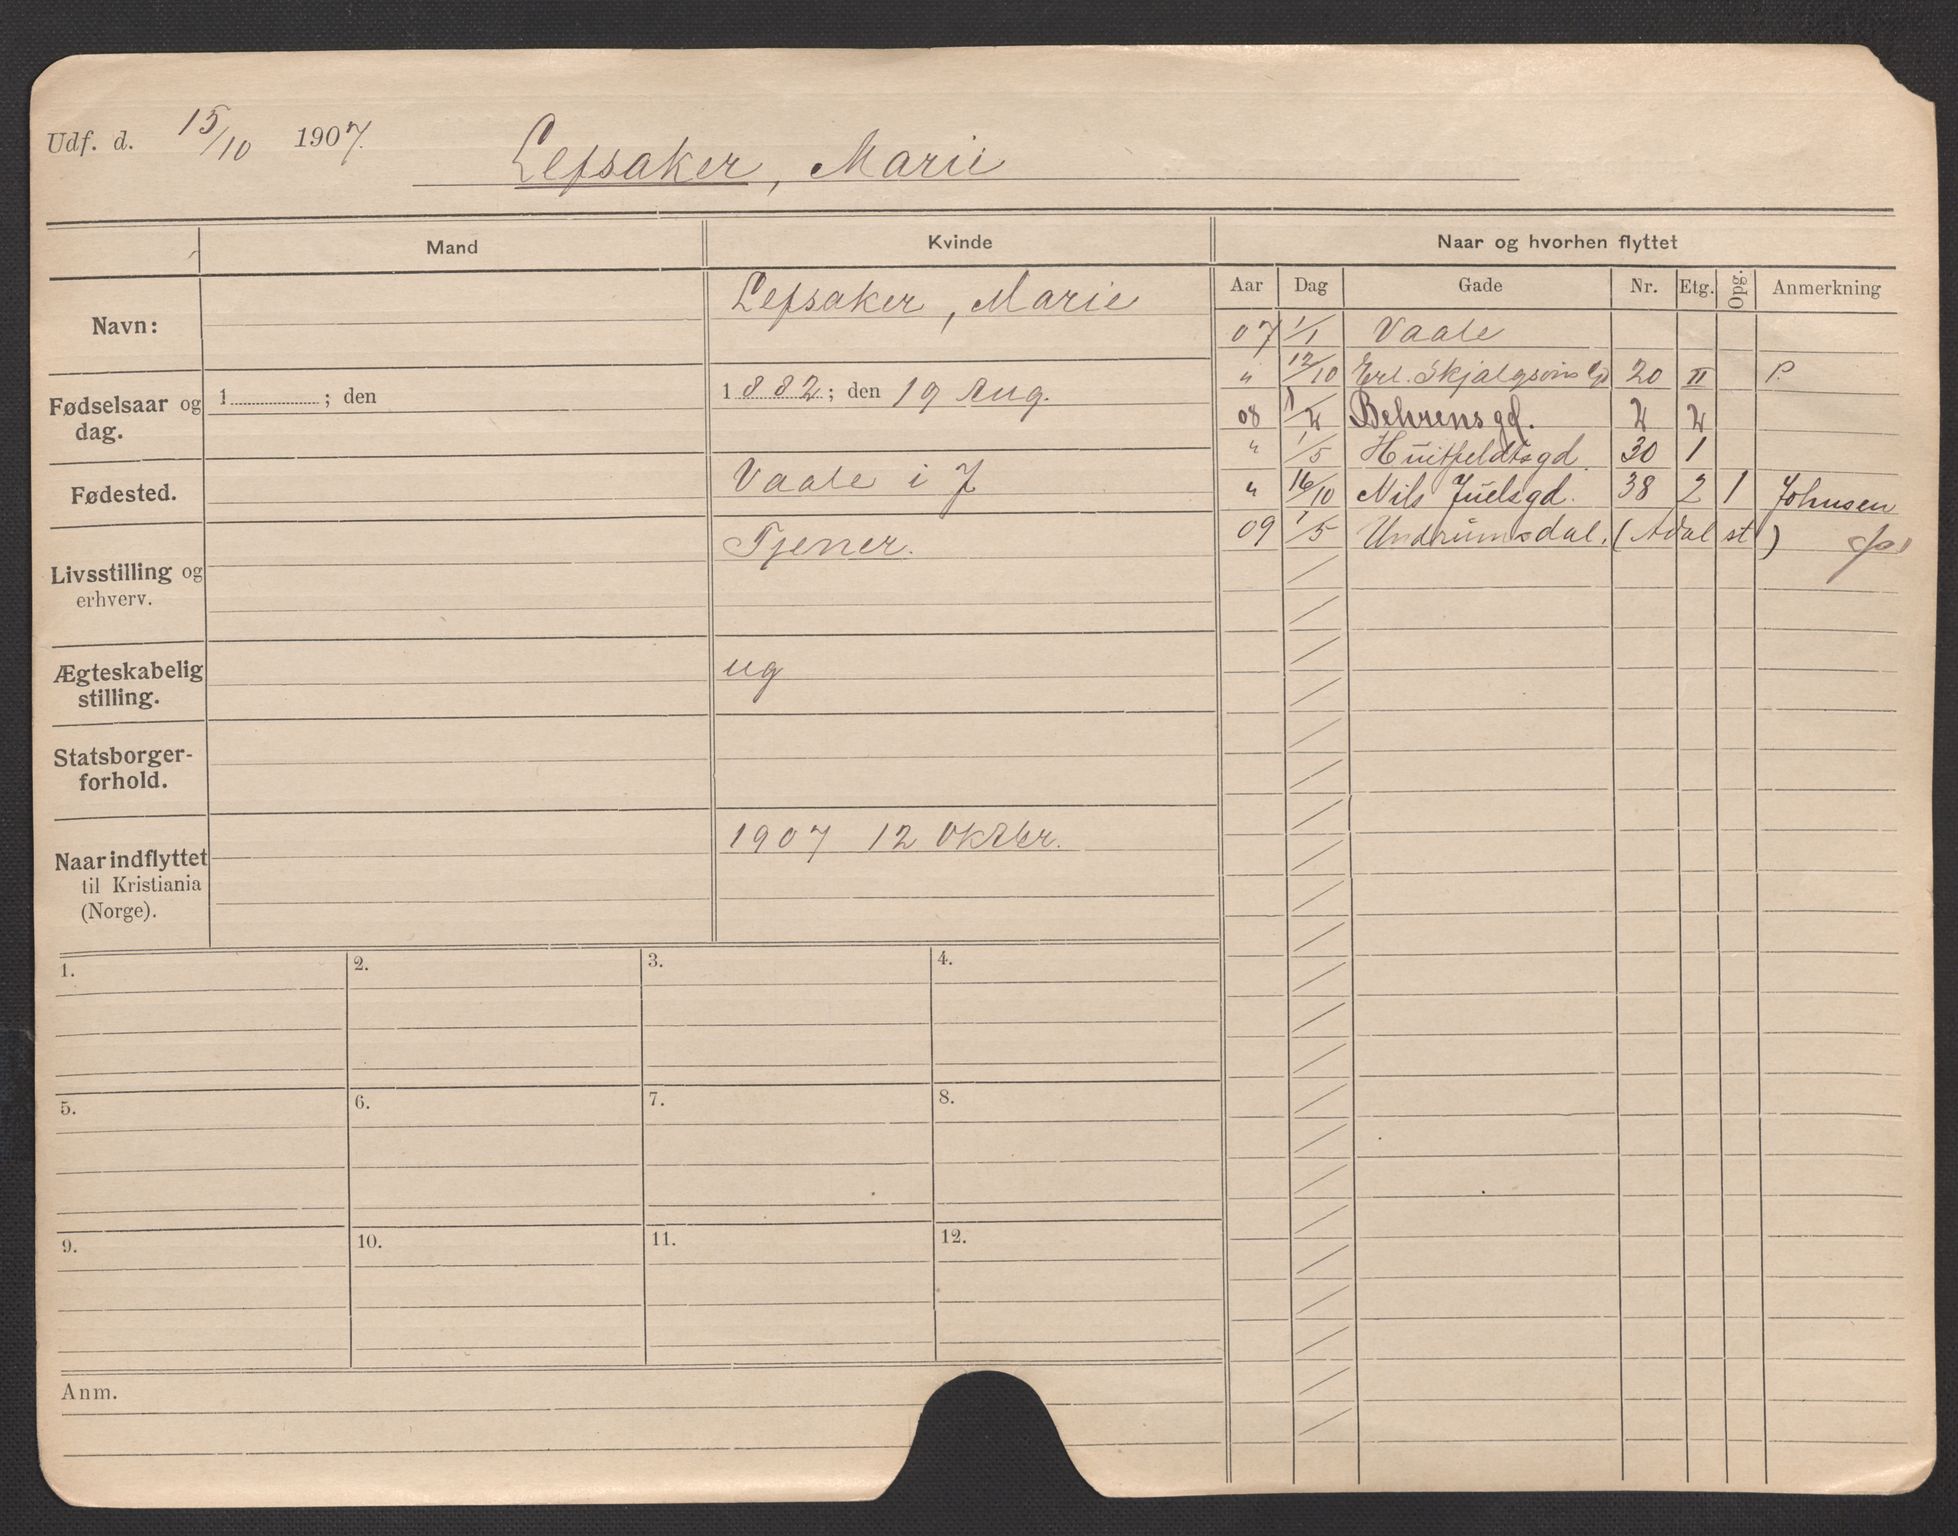 Udf. d. 15/10 1907.
Lefsaker, Marie
Mand
Kvinde
Naar og hvorhen flyttet
Aar Dag Gade Nr. Etg. Opg. Anmerkning
Navn:
Lefsaker, Marie
Fødselsaar og dag.
1 ; den
1882; den 19 Aug.
Fødested.
Vaale i J
Livsstilling og
erhverv.
Tjener.
Ægteskabelig
stilling.
ug
Statsborger-
forhold.
Naar indflyttet
til Kristiania
(Norge).
1907 12 Oktbr.
07 1/1 Vaale
" 12/10 Erl. Skjalgsøns gd 20 II P.
08 Behrensgd. 2 2
" 1/5 Huitfeldtsgd. 30 1
" 16/10 Nils Juelsgd. 38 2 1 Johnsen
09 1/5 Undrumsdal. (Adal st)
1.
2.
3.
4.
5.
6.
7.
8.
9.
10.
11.
12.
Anm.